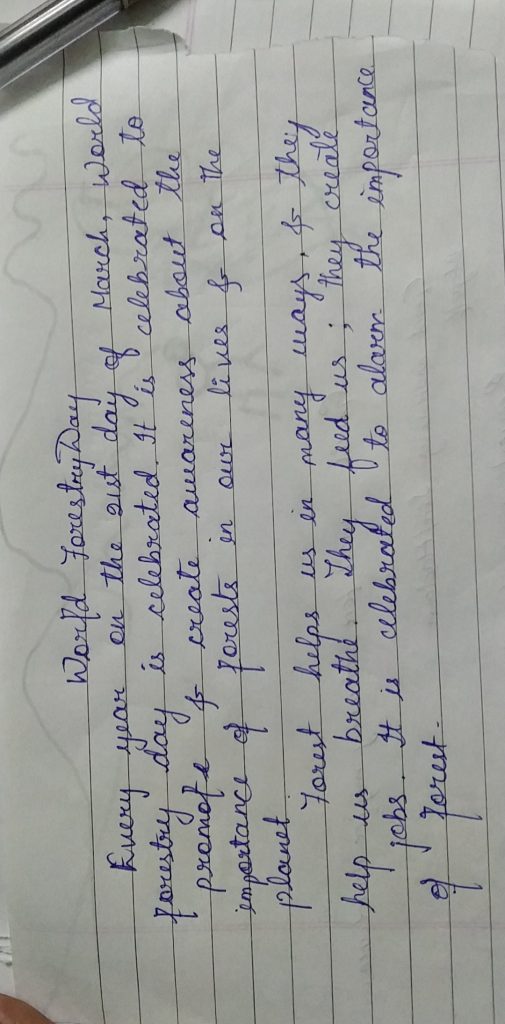 World Forestry Day
Every year on the 21st day of March, World
forestry day is celebrated. It is celebrated to
promote & create awareness about the
importance of forests in our lives & on the
planet.
Forest helps us in many ways, & they
help us breathe. They feed us; they create
jobs. It is celebrated to alarm the importance
of forest.